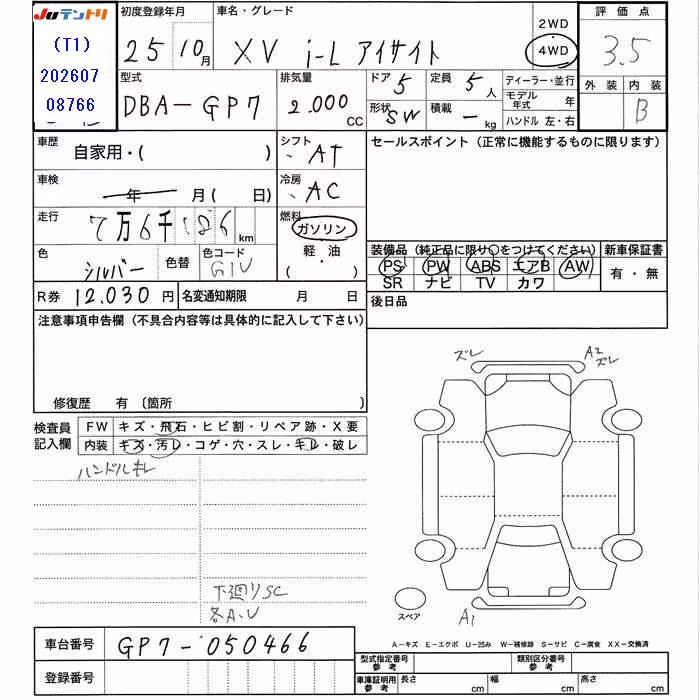 JUテントリ
(T1)
202607
08766
初度登録年月
25 10月
車名・グレード
XV i-L アイサイト
2WD
4WD
評価点
3.5
外装 内装
B
型式
DBA-GP7
排気量
2.000 CC
ドア 5
形状 SW
定員 5人
積載 - kg
ディーラー・並行
モデル年式 年
ハンドル 左・右
車歴 自家用・( )
シフト AT
セールスポイント(正常に機能するものに限ります)
車検 年 月( 日)
冷房 AC
走行 7万6千186 km
燃料 ガソリン
軽・油
( )
色 シルバー
色替
色コード G1U
装備品(純正品に限り〇をつけてください)
PS PW ABS エアB AW
SR ナビ TV カワ
新車保証書
有・無
R券 12.030 円
名変通知期限 月 日
後日品
注意事項申告欄(不具合内容等は具体的に記入して下さい)
修復歴 有 〔箇所 〕
ズレ
A2
ズレ
検査員
記入欄
FW キズ・飛石・ヒビ割・リペア跡・X要
内装 キズ・汚レ・コゲ・穴・スレ・キレ・破レ
ハンドルキレ
下廻りSC
各A.U
スペア
A1
A-キズ E-エクボ U-凹み W-補修跡 S-サビ C-腐食 XX-交換済
車台番号 GP7-050466
登録番号
型式指定番号 参考
類別区分番号 参考
車庫証明用 参考
長さ cm
幅 cm
高さ cm